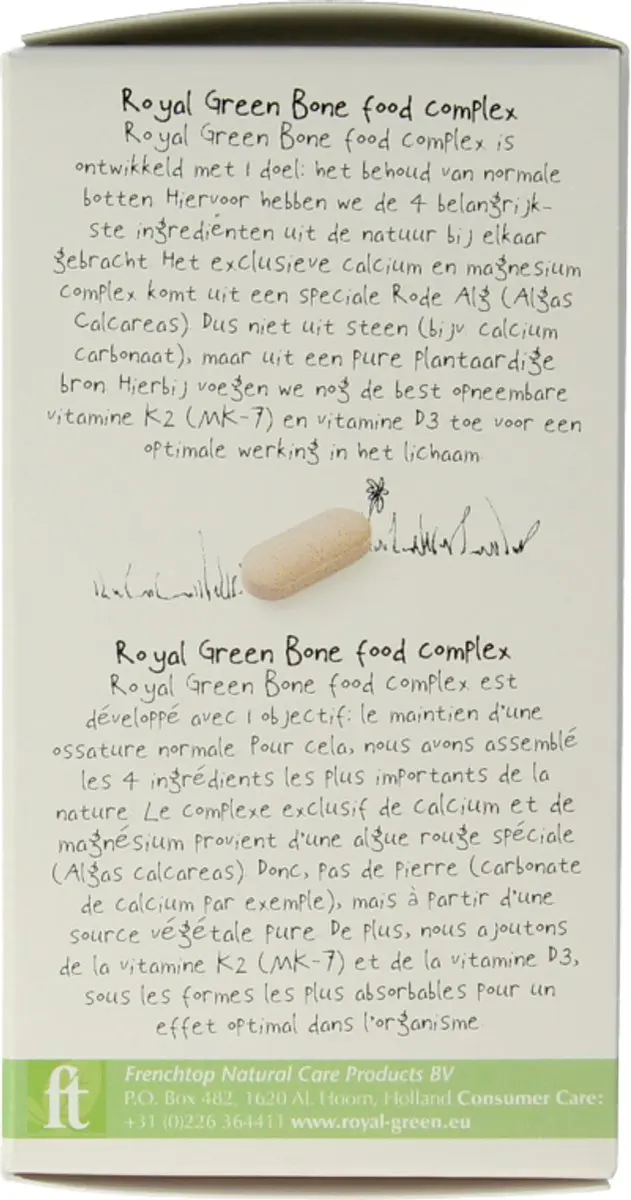 Royal Green Bone food complex
Royal Green Bone food complex is
ontwikkeld met 1 doel: het behoud van normale
botten Hiervoor hebben we de 4 belangrijk-
ste ingrediënten uit de natuur bij elkaar
gebracht Het exclusieve calcium en magnesium
complex komt uit een speciale Rode Alg (Algas
Calcareas) Dus niet uit steen (bijv calcium
carbonaat), maar uit een pure plantaardige
bron Hierbij voegen we nog de best opneembare
vitamine K2 (MK-7) en vitamine D3 toe voor een
optimale werking in het lichaam
Royal Green Bone food complex
Royal Green Bone food complex est
développé avec 1 objectif: le maintien d'une
ossature normale Pour cela, nous avons assemblé
les 4 ingrédients les plus importants de la
nature Le complexe exclusif de calcium et de
magnésium provient d'une algue rouge spéciale
(Algas calcareas) Donc, pas de pierre (carbonate
de calcium par exemple), mais à partir d'une
source végétale pure De plus, nous ajoutons
de la vitamine K2 (MK-7) et de la vitamine D3,
sous les formes les plus absorbables pour un
effet optimal dans l'organisme
ft
Frenchtop Natural Care Products BV
P.O. Box 482, 1620 AL Hoorn, Holland Consumer Care:
+31 (0)226 364411 www.royal-green.eu